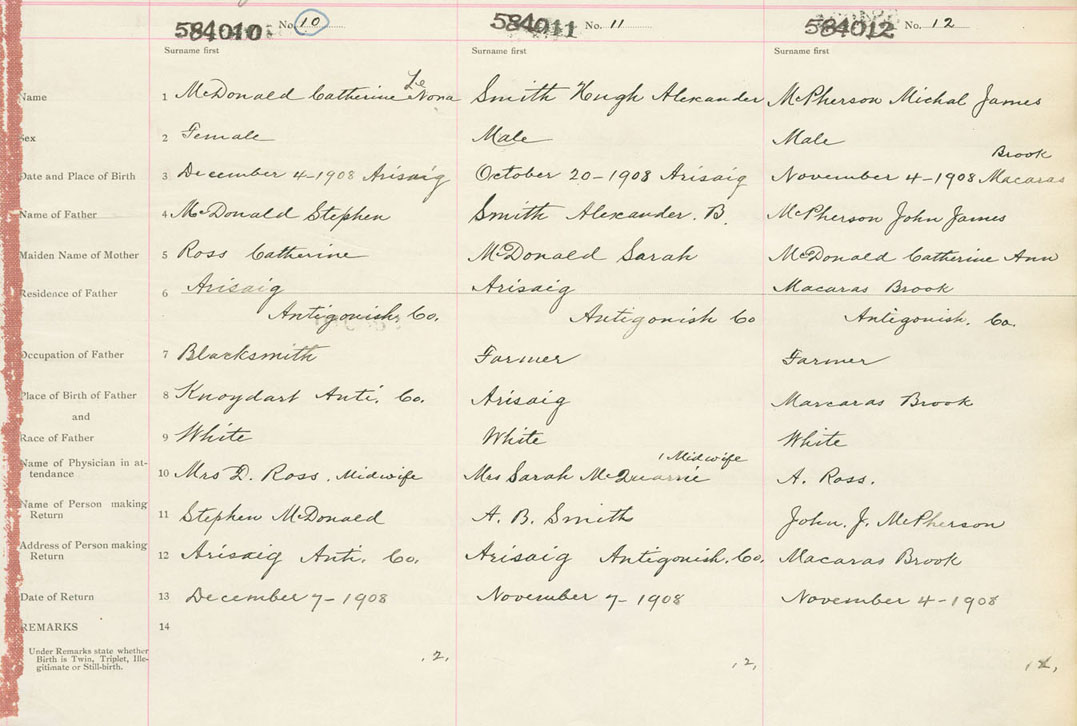 584010 No. 10 584011 No. 11 584012 No. 12
Surname first Surname first Surname first
Le
Name 1 McDonald Catherine Nona Smith Hugh Alexander McPherson Michal James
Sex 2 Female Male Male
Brook
Date and Place of Birth 3 December 4-1908 Arisaig October 20-1908 Arisaig November 4-1908 Macaras
Name of Father 4 McDonald Stephen Smith Alexander. B. McPherson John James
Maiden Name of Mother 5 Ross Catherine McDonald Sarah McDonald Catherine Ann
Residence of Father 6 Arisaig Arisaig Macaras Brook
Antigonish, Co. Antigonish Co Antigonish. Co.
Occupation of Father 7 Blacksmith Farmer Farmer
Place of Birth of Father 8 Knoydart Anti. Co. Arisaig Marcaras Brook
and
Race of Father 9 White White White
Name of Physician in at-
Midwife
tendance 10 Mrs D. Ross, Midwife Mrs Sarah McQuarrie A. Ross.
Name of Person making
Return 11 Stephen McDonald A. B. Smith John. J. McPherson
Address of Person making
Return 12 Arisaig Anti. Co. Arisaig Antigonish. Co. Macaras Brook
Date of Return 13 December 7-1908 November 7-1908 November 4-1908
REMARKS 14
Under Remarks state whether
Birth is Twin, Triplet, Ille-
gitimate or Still-birth.
.2. .2,